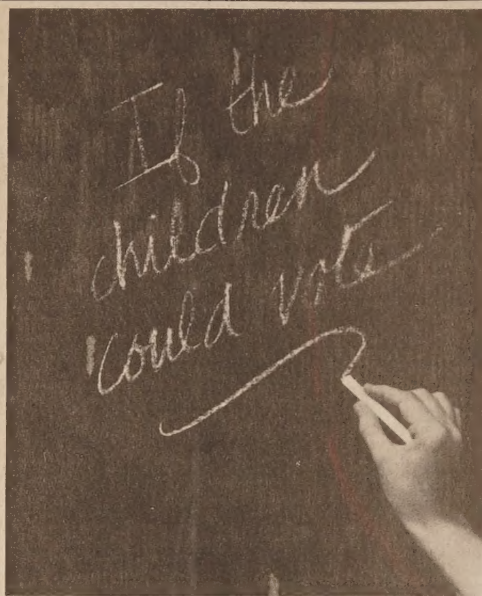 If the
children
could vote